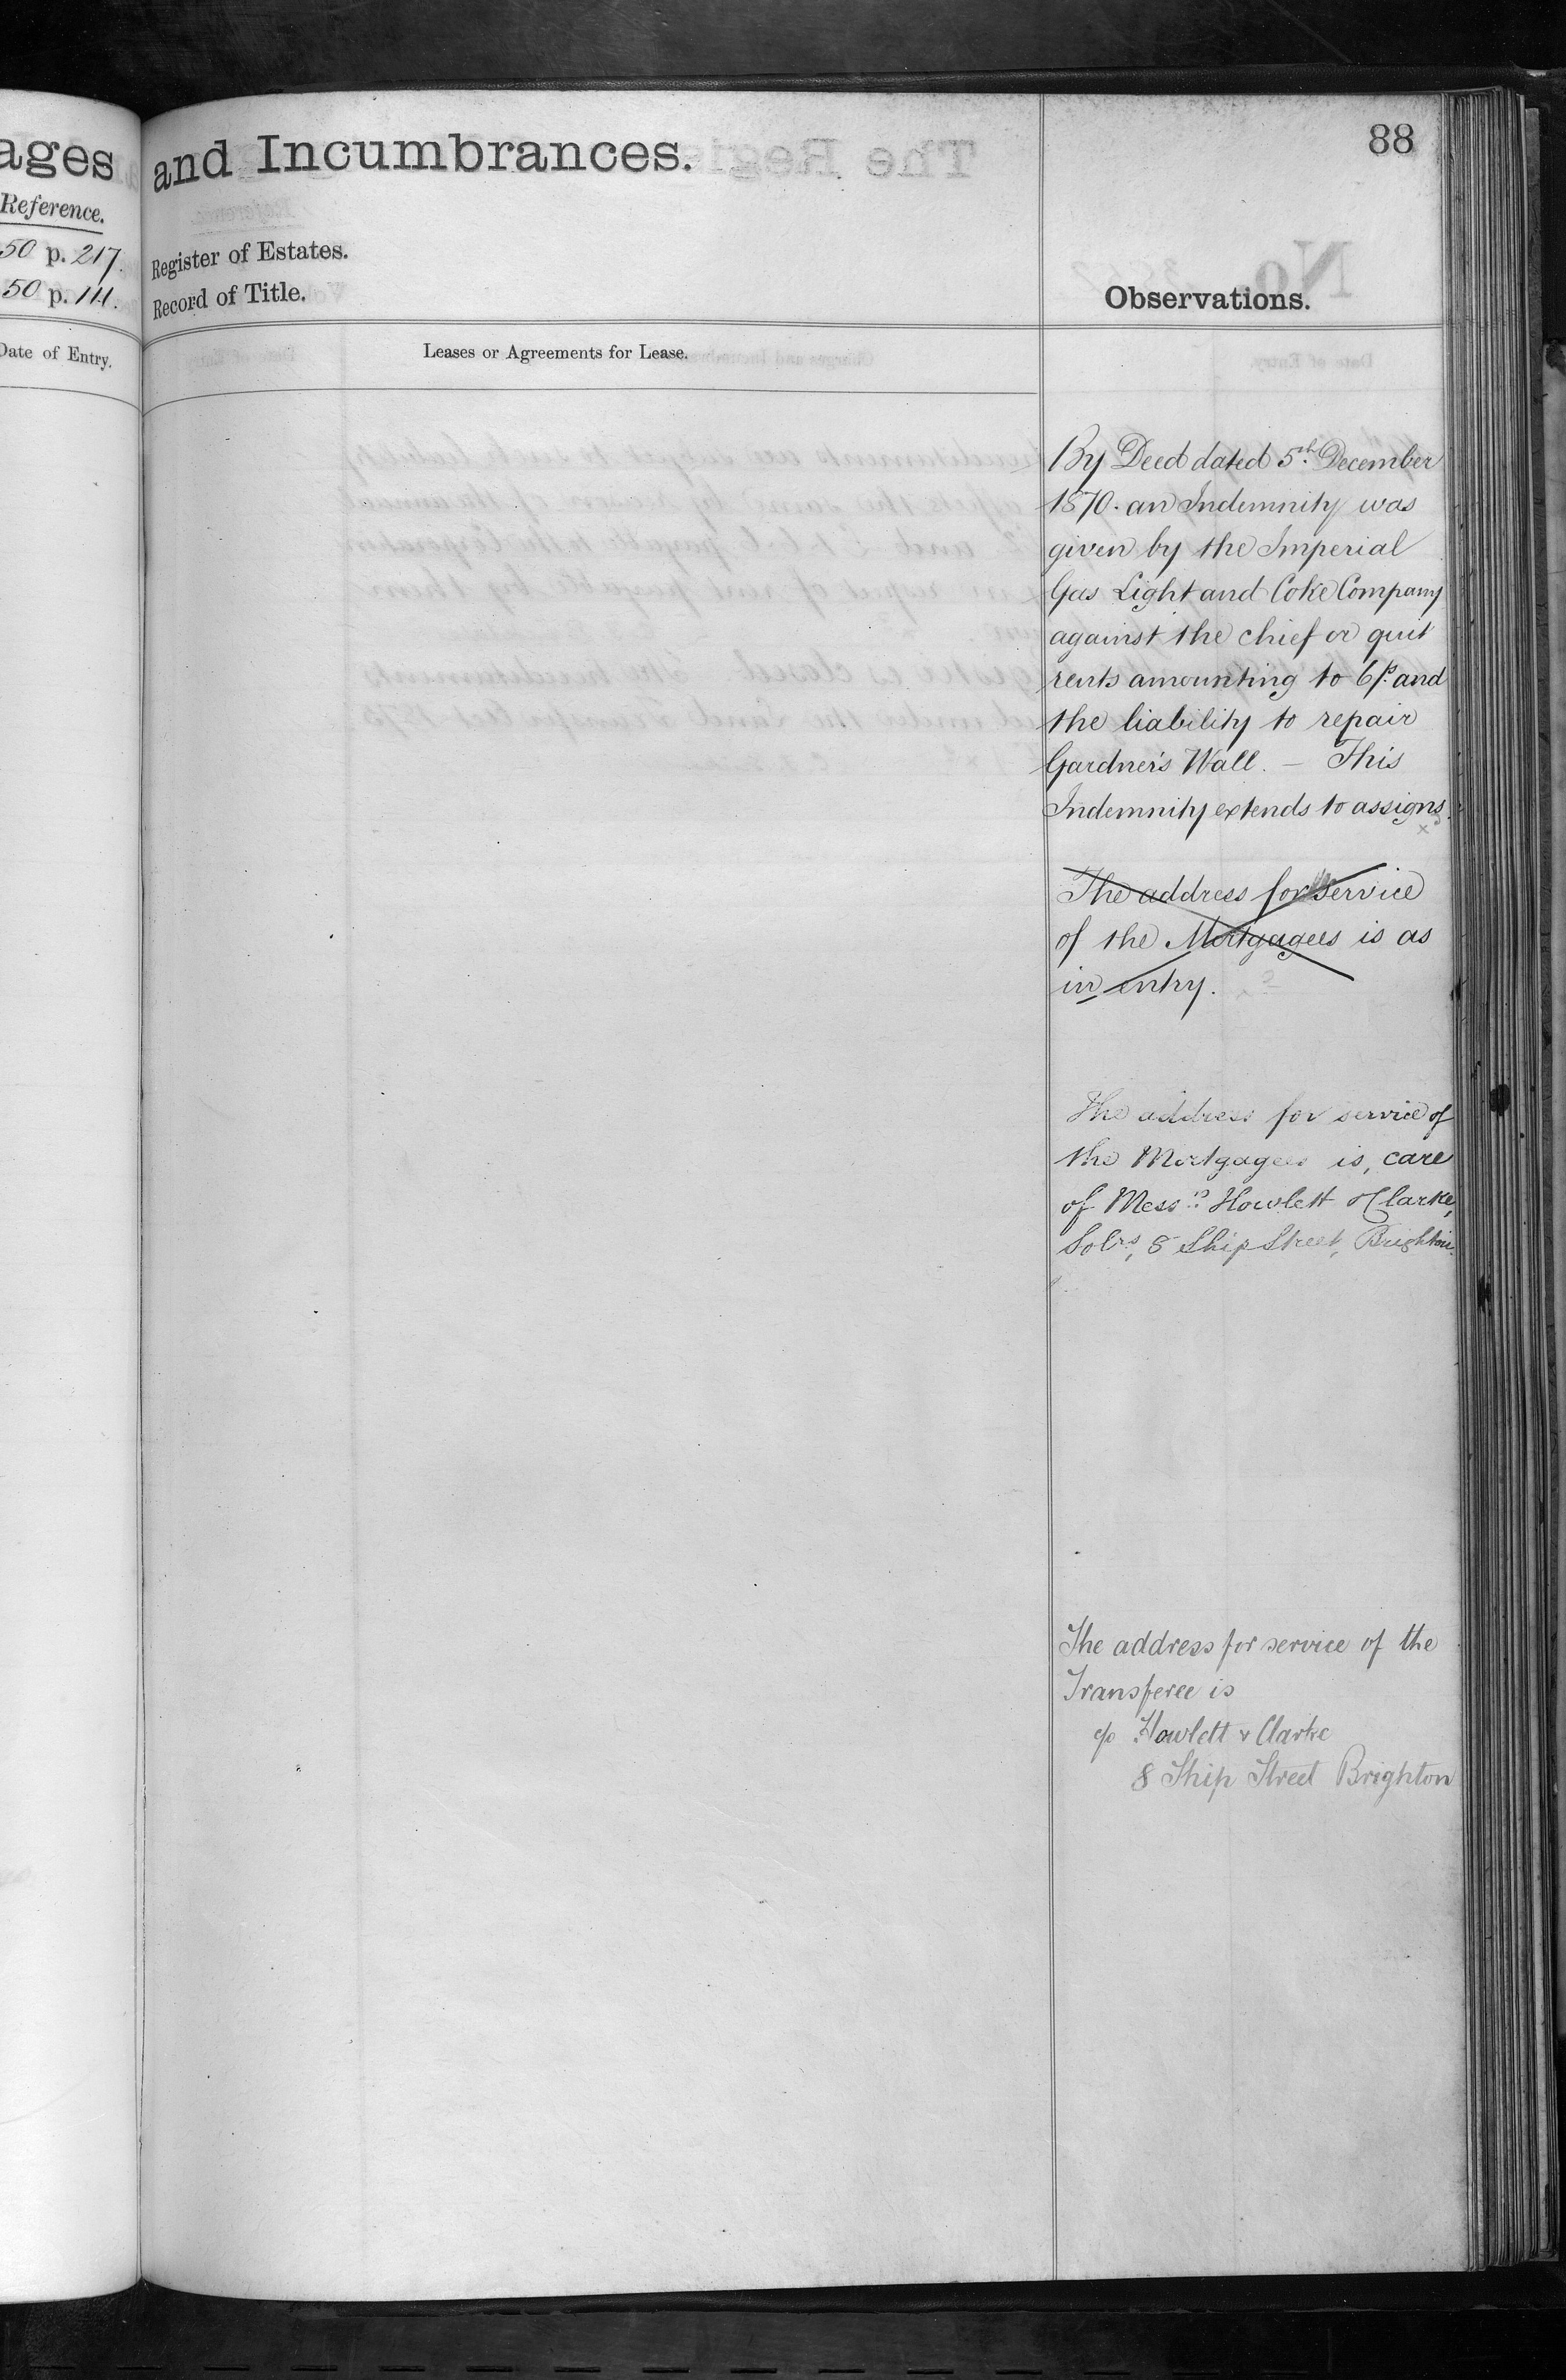 ages
Reference.
50 p. 217.
50 p. 111.
Date of Entry.
and Incumbrances.
88
Register of Estates.
Record of Title.
Observations.
Leases or Agreements for Lease.
By Deed dated 5th December
1870. an Indemnity was
given by the Imperial
Gas Light and Coke Company
against the chief or quit
rents amounting to 6/. and
the liability to repair
Gardner's Wall. — This
Indemnity extends to assigns.
The address for service
of the Mortgagees is as
in entry.
The address for service of
the Mortgagees is, care
of Messrs Howlett & Clarke,
Solrs, 8 Ship Street, Brighton.
The address for service of the
Transferee is
c/o Howlett & Clarke
8 Ship Street Brighton